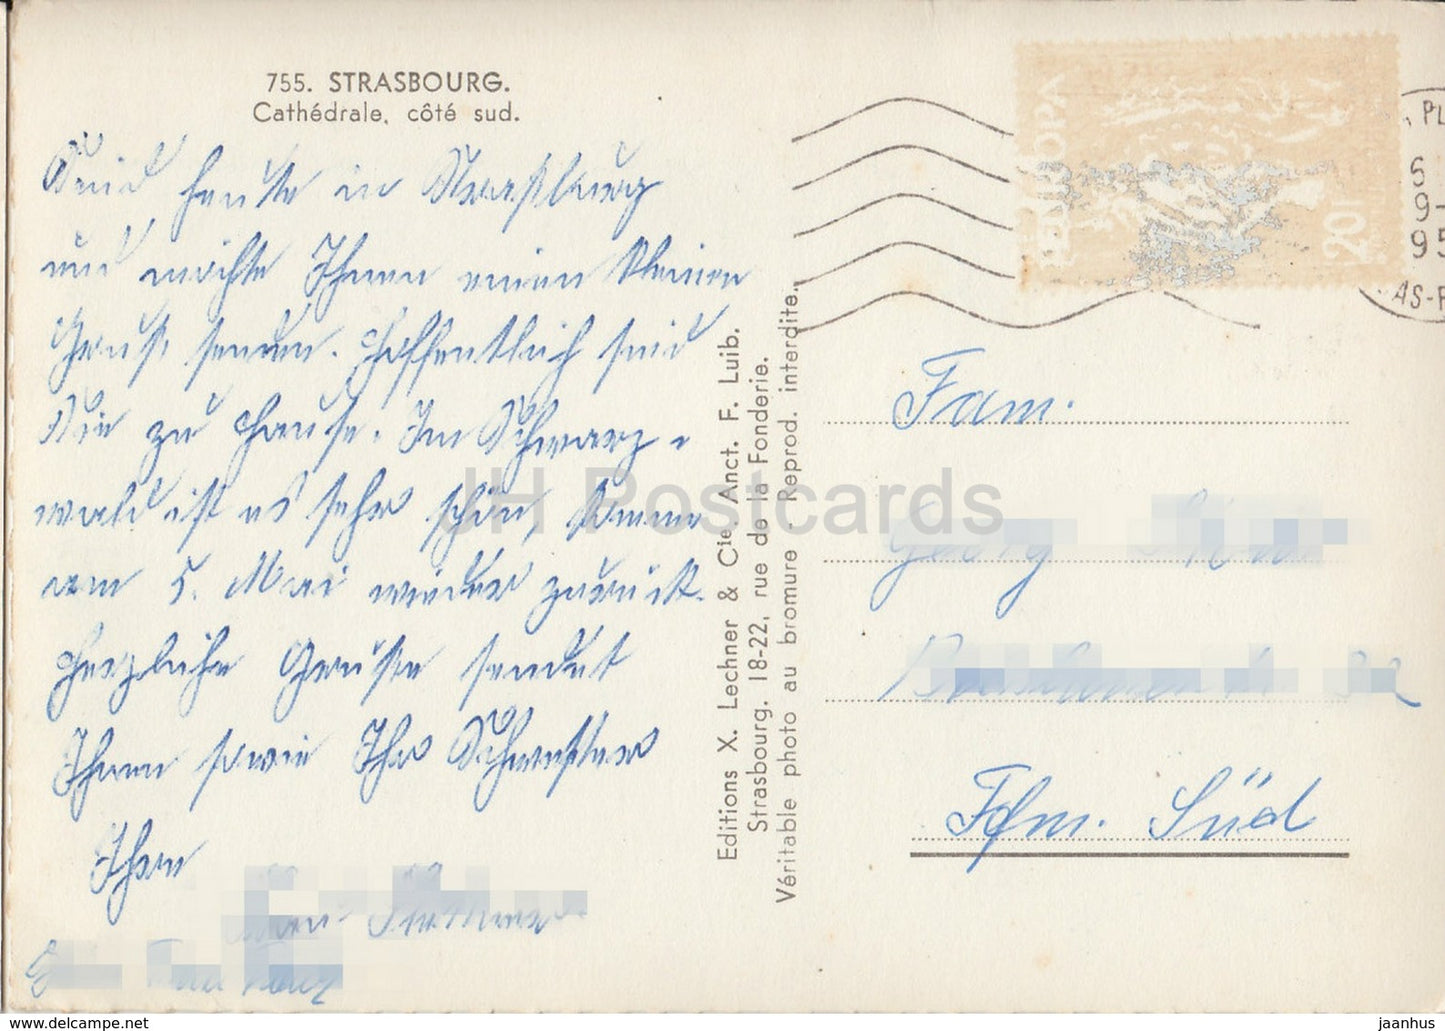 755. STRASBOURG.
Cathédrale, côté sud.
Sind heute in Strassburg
und möchte Ihnen einen kleinen
Gruß senden. Hoffentlich sind
Sie zu Hause. Im Schwarz-
wald ist es sehr schön, komme
am 5. Mai wieder zurück.
Herzliche Grüße sendet
Ihnen sowie Ihr Schwester
Ihre
Editions X. Lechner & Cie, Anct. F. Luib.
Strasbourg. 18-22, rue de la Fonderie.
Véritable photo au bromure - Reprod. interdite.
EUROPA
20F
PL
9-
95
AS-R
Fam.
Georg
Ffm. Süd
JH Postcards
www.delcampe.net
jaanhus